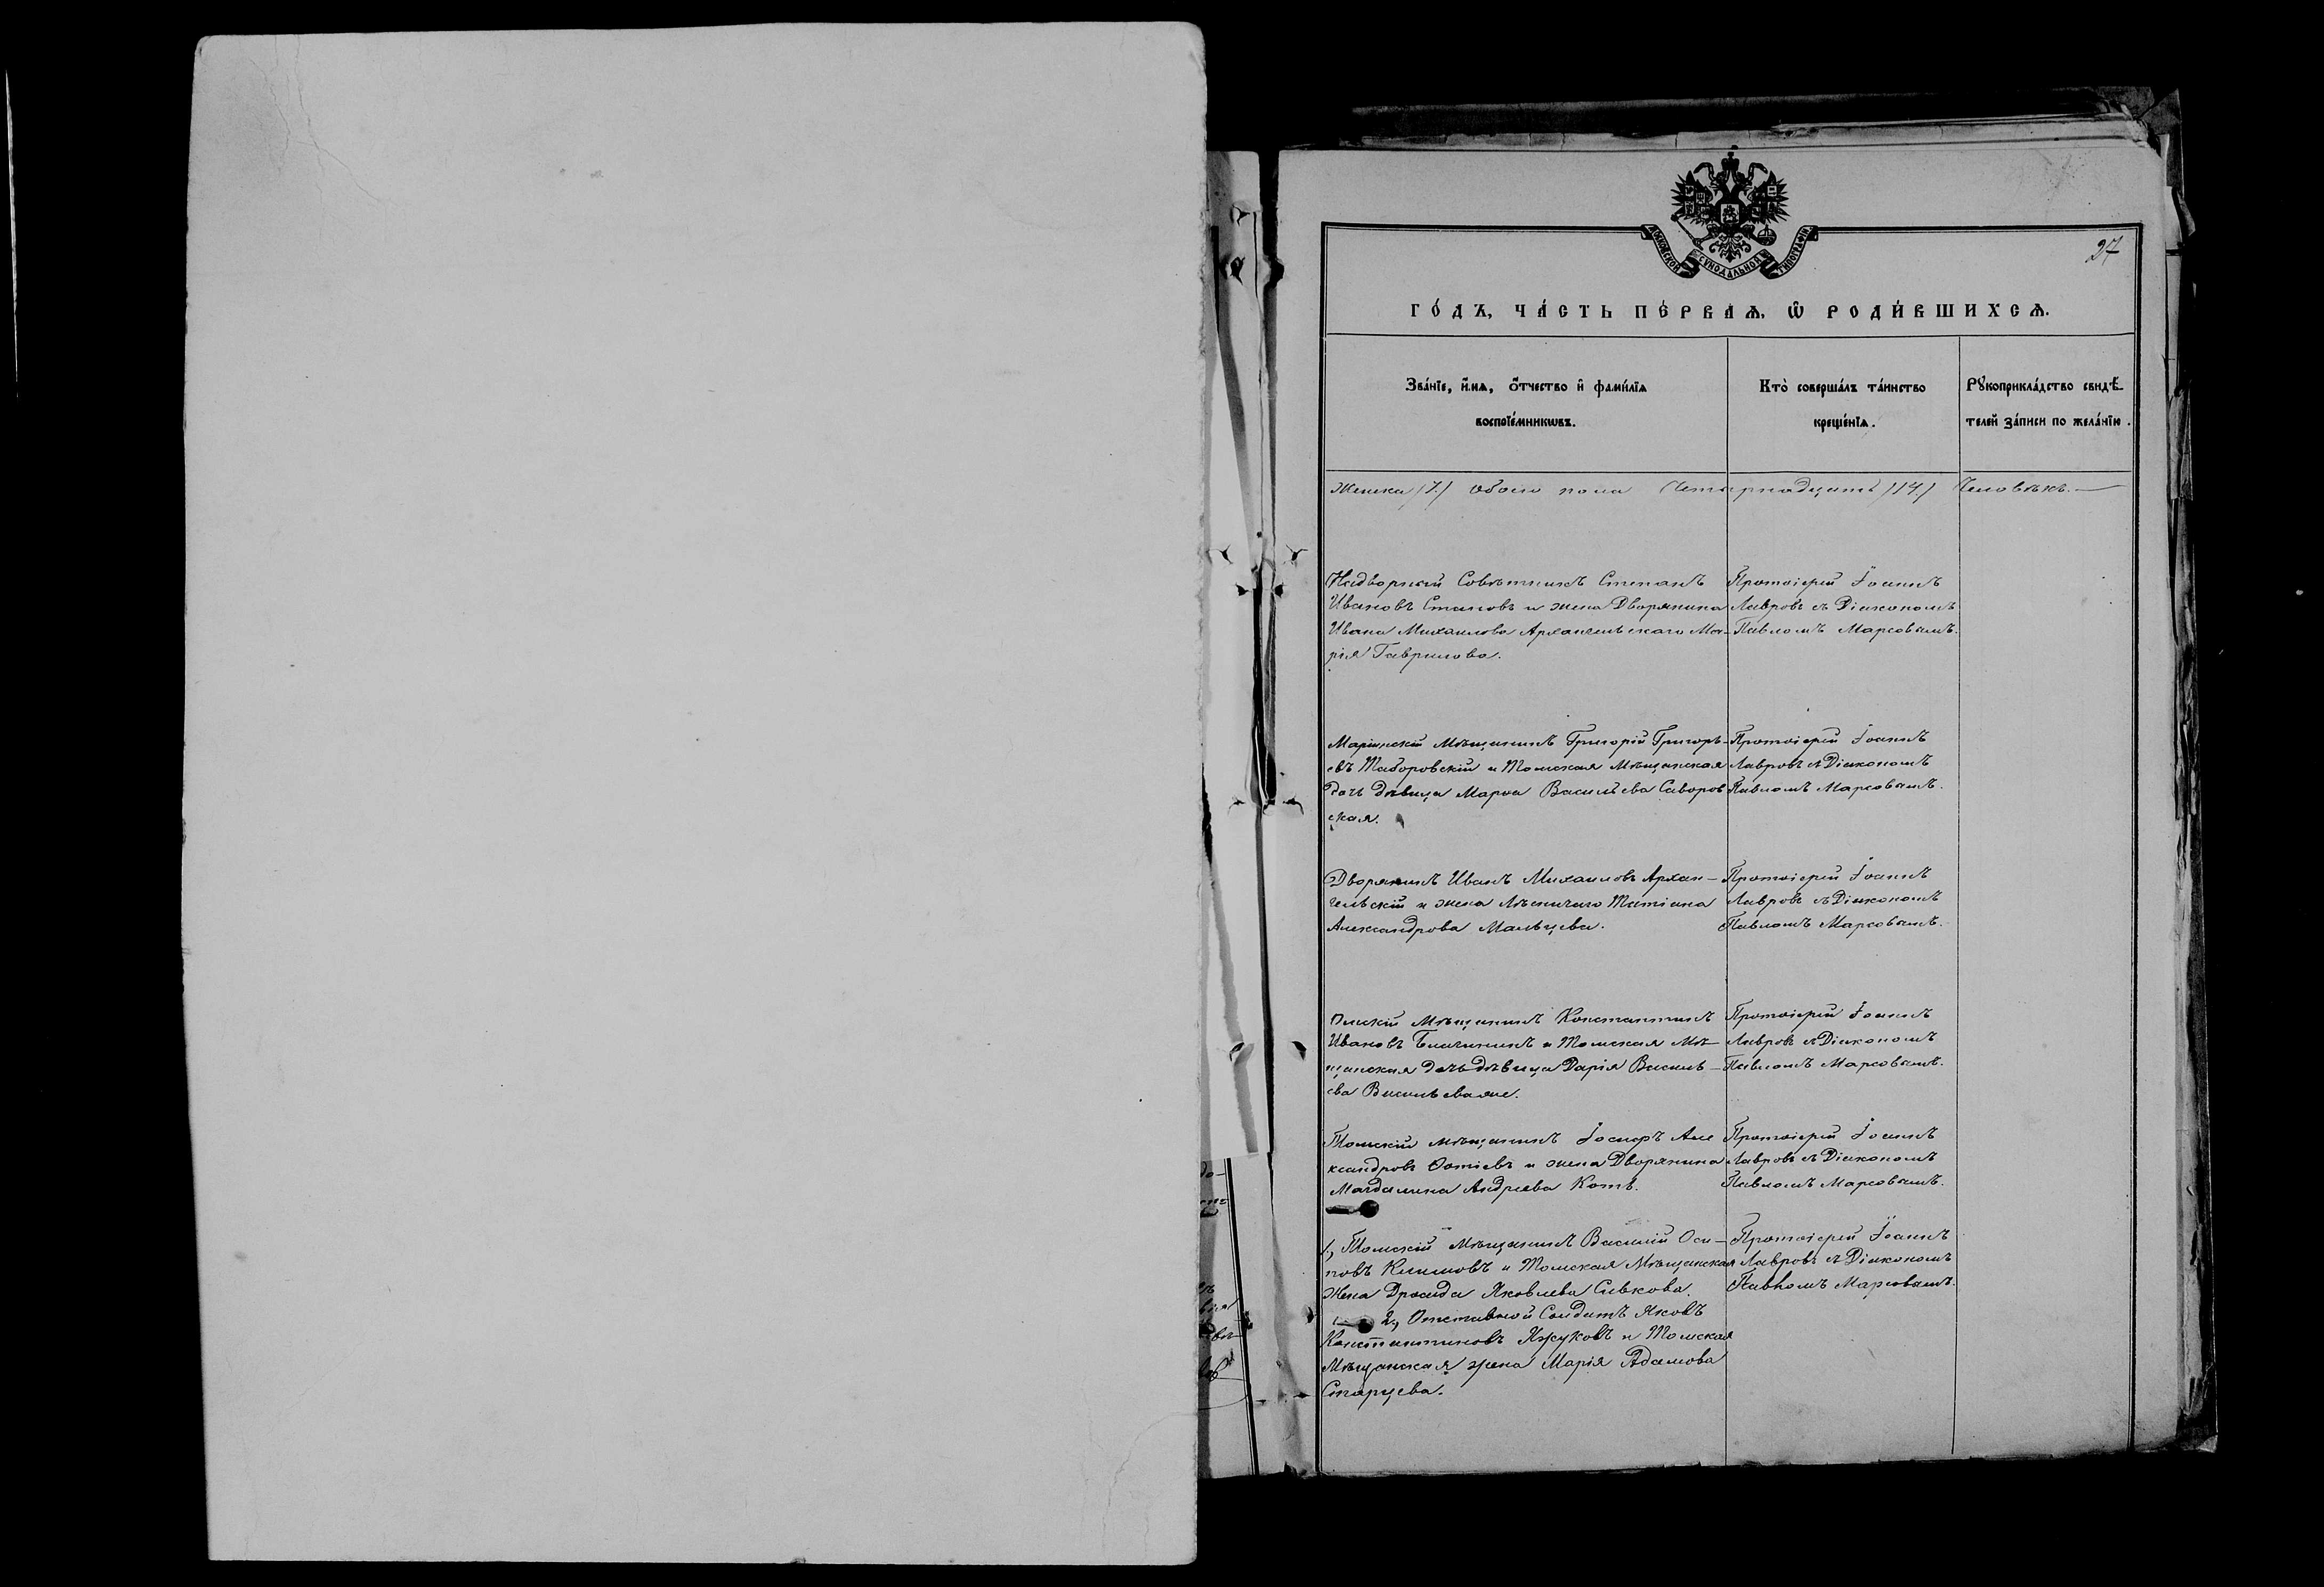 МОСКОВСКОЙ СѴНОДАЛЬНОЙ ТИПОГРАФІИ
27
ГО́ДЪ, ЧА́СТЬ ПЕ́РВАѦ, Ѡ҆ РОДИ́ВШИХСѦ.
Зва́нїе, и҆́мѧ, ѻ҆́тчество и҆ фами́лїѧ
воспрїе́мникѡвъ.
Кто̀ соверша́лъ та́инство
креще́нїѧ.
Рꙋкоприкла́дство свидѣ́-
телей за́писи по жела́нїю.
Женска /7./ обоего пола Четырнадцать /14./ Человѣкъ.—
Надворный Совѣтникъ Степанъ
Ивановъ Становъ и жена Дворянина
Ивана Михаилова Архангельскаго Ма-
рія Гаврилова.
Протоіерей Іоаннъ
Лавровъ съ Діакономъ
Павломъ Марсовымъ.
Маріинскій Мѣщанинъ Григорій Григорь-
евъ Таборовскій и Томская Мѣщанская
дочь дѣвица Марѳа Васильева Саворов
ская.
Протоіерей Іоаннъ
Лавровъ съ Діакономъ
Павломъ Марсовымъ.
Дворянинъ Иванъ Михаиловъ Архан-
гельскій и жена Лѣсничаго Татіана
Александрова Мальцева.
Протоіерей Іоаннъ
Лавровъ съ Діакономъ
Павломъ Марсовымъ.
Омскій Мѣщанинъ Константинъ
Ивановъ и Томская Мѣ-
щанская дочь дѣвица Дарія Василь-
ева
Протоіерей Іоаннъ
Лавровъ съ Діакономъ
Павломъ Марсовымъ.
Томскій мѣщанинъ Іосифъ Але
ксандровъ Фотіевъ и жена Дворянина
Магдалина Андреева Котъ.
Протоіерей Іоаннъ
Лавровъ съ Діакономъ
Павломъ Марсовымъ.
1., Томскій Мѣщанинъ Василій Оси-
повъ Климовъ и Томская Мѣщанская
жена Яковлева Сивкова.
2., Отставной Солдатъ Яковъ
Константиновъ и Томская
Мѣщанская жена Марія Адамова
Старцева.
Протоіерей Іоаннъ
Лавровъ съ Діакономъ
Павломъ Марсовымъ.